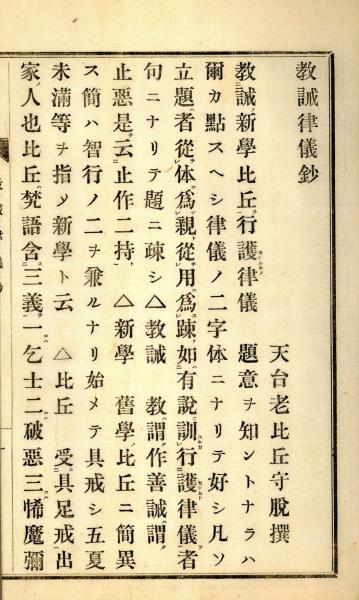 教誡律儀鈔
天台老比丘守脫撰
教誡新學比丘行護律儀　題意ヲ知ントナラハ
爾カ點スヘシ律儀ノ二字体ニナリテ好シ凡ソ
立題者從体爲親從用爲踈如有說訓行護律儀者
句ニナリテ題ニ疎シ△教誡　教謂作善誡謂
止惡是云止作二持　△新學　舊學比丘ニ簡異
ス簡ハ智行ノ二ヲ兼ルナリ始メテ具戒シ五夏
未滿等ヲ指メ新學ト云　△比丘　受具足戒出
家人也比丘梵語含三義一乞士二破惡三怖魔彌